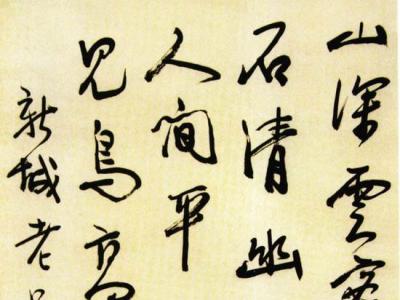 山深雲
石清幽
人間平
見鳥
新城老